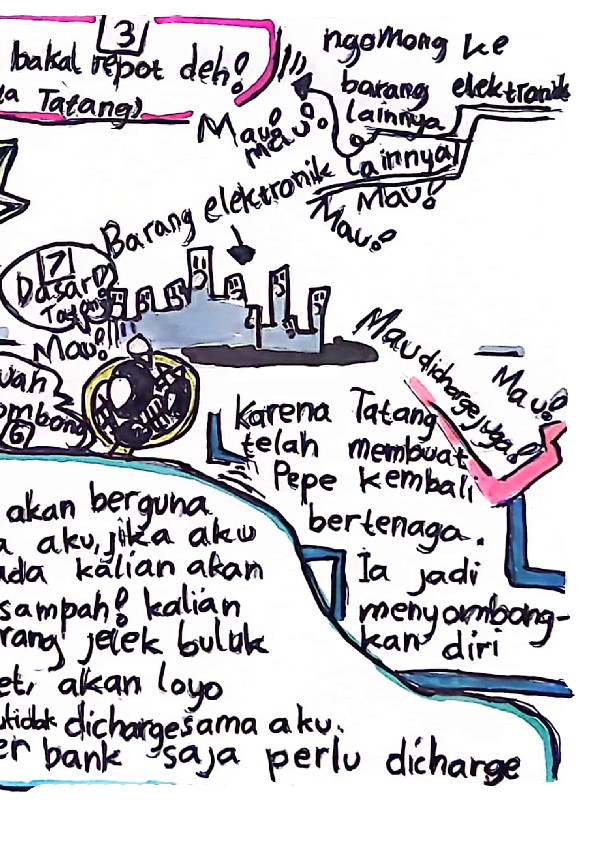 3
bakal repot deh!
a Tatang)
ngomong ke
barang elektronik
lainnya
lainnya!
Mau!
mau!
Mau!
Mau!
Barang elektronik
7
Dasar!
Tatang
Mau!
Mau dicharge juga!
Mau!
uah
ombong
6
Karena Tatang
telah membuat
Pepe kembali
bertenaga.
Ia jadi
menyombong-
kan diri
akan berguna
a aku, jika aku
ada kalian akan
sampah! kalian
rang jelek buluk
et, akan loyo
tidak dicharge sama aku.
er bank saja perlu dicharge